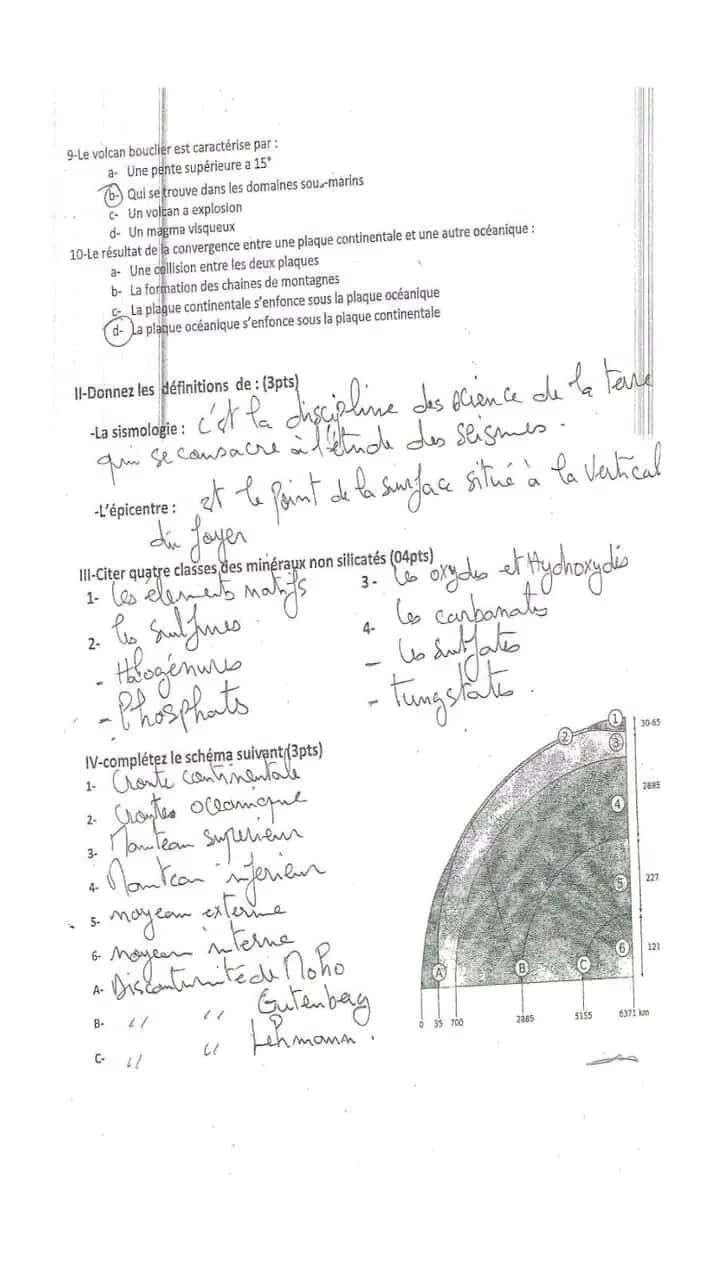 9-Le volcan bouclier est caractérise par :
a- Une pente supérieure a 15°
b- Qui se trouve dans les domaines sous-marins
c- Un volcan a explosion
d- Un magma visqueux
10-Le résultat de la convergence entre une plaque continentale et une autre océanique :
a- Une collision entre les deux plaques
b- La formation des chaines de montagnes
c- La plaque continentale s'enfonce sous la plaque océanique
d- La plaque océanique s'enfonce sous la plaque continentale
II-Donnez les définitions de : (3pts)
-La sismologie : c'est la discipline des science de la terre
qui se consacre à l'étude des seismes.
-L'épicentre : est le point de la surface situé à la vertical
du foyer
III-Citer quatre classes des minéraux non silicatés (04pts)
1- les élements natifs
2- les sulfures
- Halogénures
- Phosphats
3- les oxydes et Hydroxydés
4- les carbonates
- les sulfates
- Tungstates.
IV-complétez le schéma suivant (3pts)
1- Croute continentale
2- Croutes oceanique
3- Manteau superieur
4- Manteau inferieur
5- noyeau externe
6- noyeau interne
A- Discontinuité de Moho
B- " " Gutenberg
C- " " Lehmann.
1 30-65
2
3
2885
4
5 227
6 121
A B C
0 35 700 2885 5155 6371 km